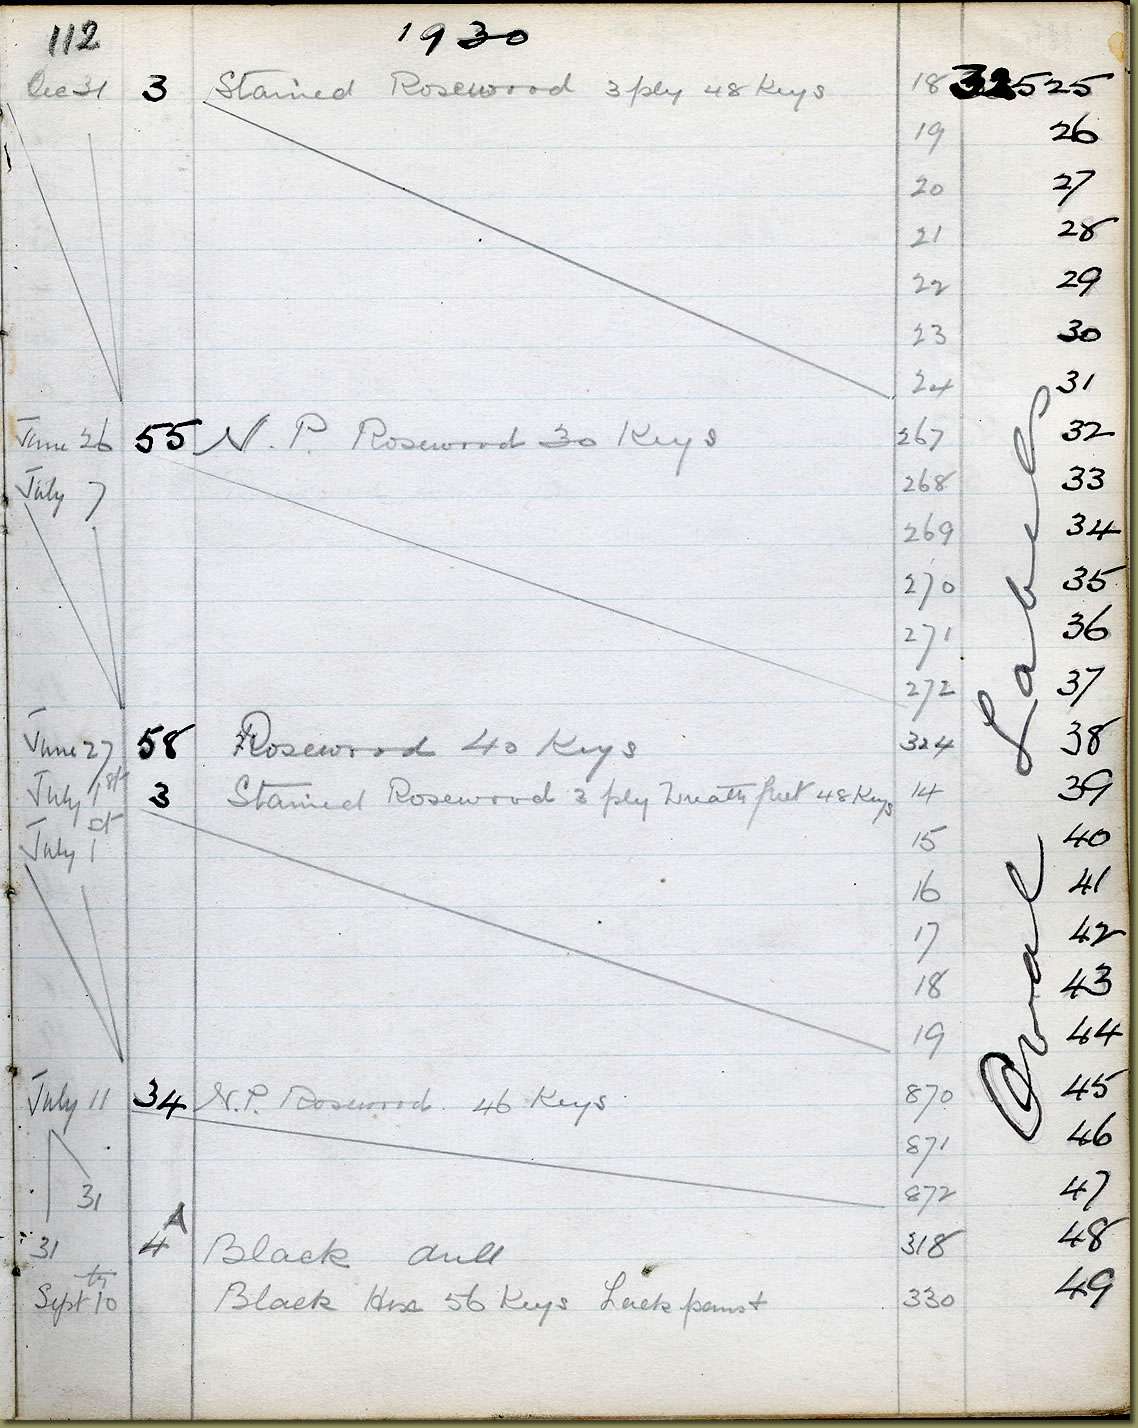 112 1930
Dec 31 3 Stained Rosewood 3 ply 48 Keys 18 32525
19 26
20 27
21 28
22 29
23 30
24 31
June 26 55 N. P. Rosewood 30 Keys 267 32
July 7 268 33
269 34
270 35
271 36
272 37
June 27 58 Rosewood 40 Keys 324 38
July 1st 3 Stained Rosewood 3 ply Wreath fret 48 Keys 14 39
July 1st 15 40
16 41
17 42
18 43
19 44
July 11 34 N.P. Rosewood. 46 Keys 870 45
871 46
31 872 47
31 4A Black dull 318 48
Sept 10th Black Hex 56 Keys 330 49
Oval Labels